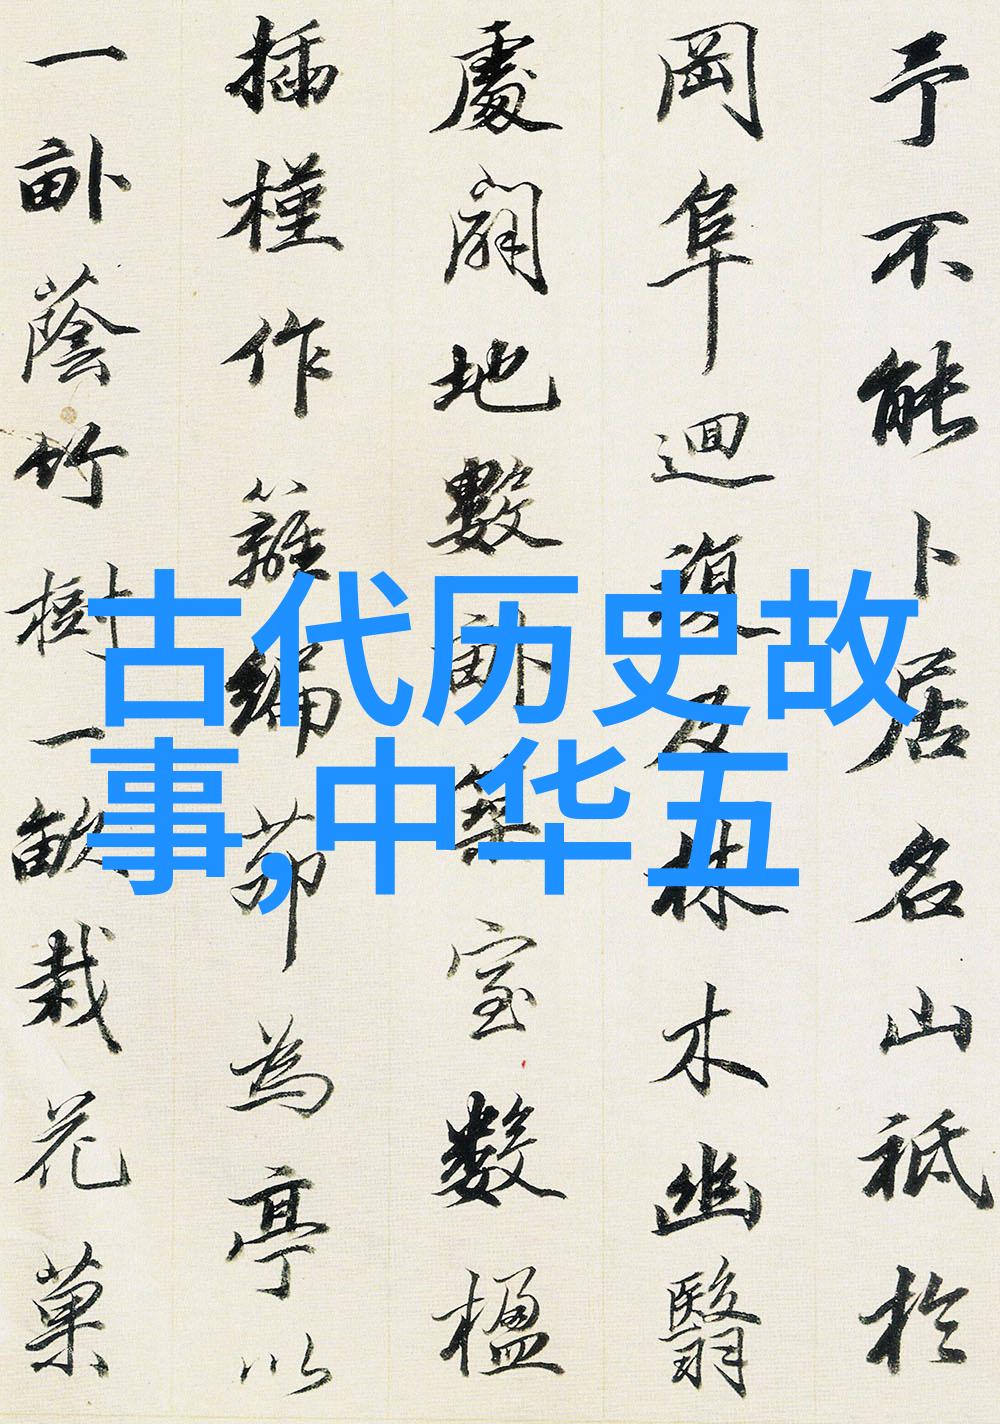 予不能卜居名山祗於
岡阜迴復及林木幽翳
處闢地數畝築室數楹
插槿作籬編茆為亭以
一畝蔭竹樹一畝栽花菓
古代历史故
事,中华五